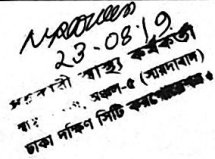 23.08.19
সহকারী স্বাস্থ্য কর্মকর্তা
অঞ্চল-৫ (সায়দাবাদ)
ঢাকা দক্ষিণ সিটি কর্পোরেশন।